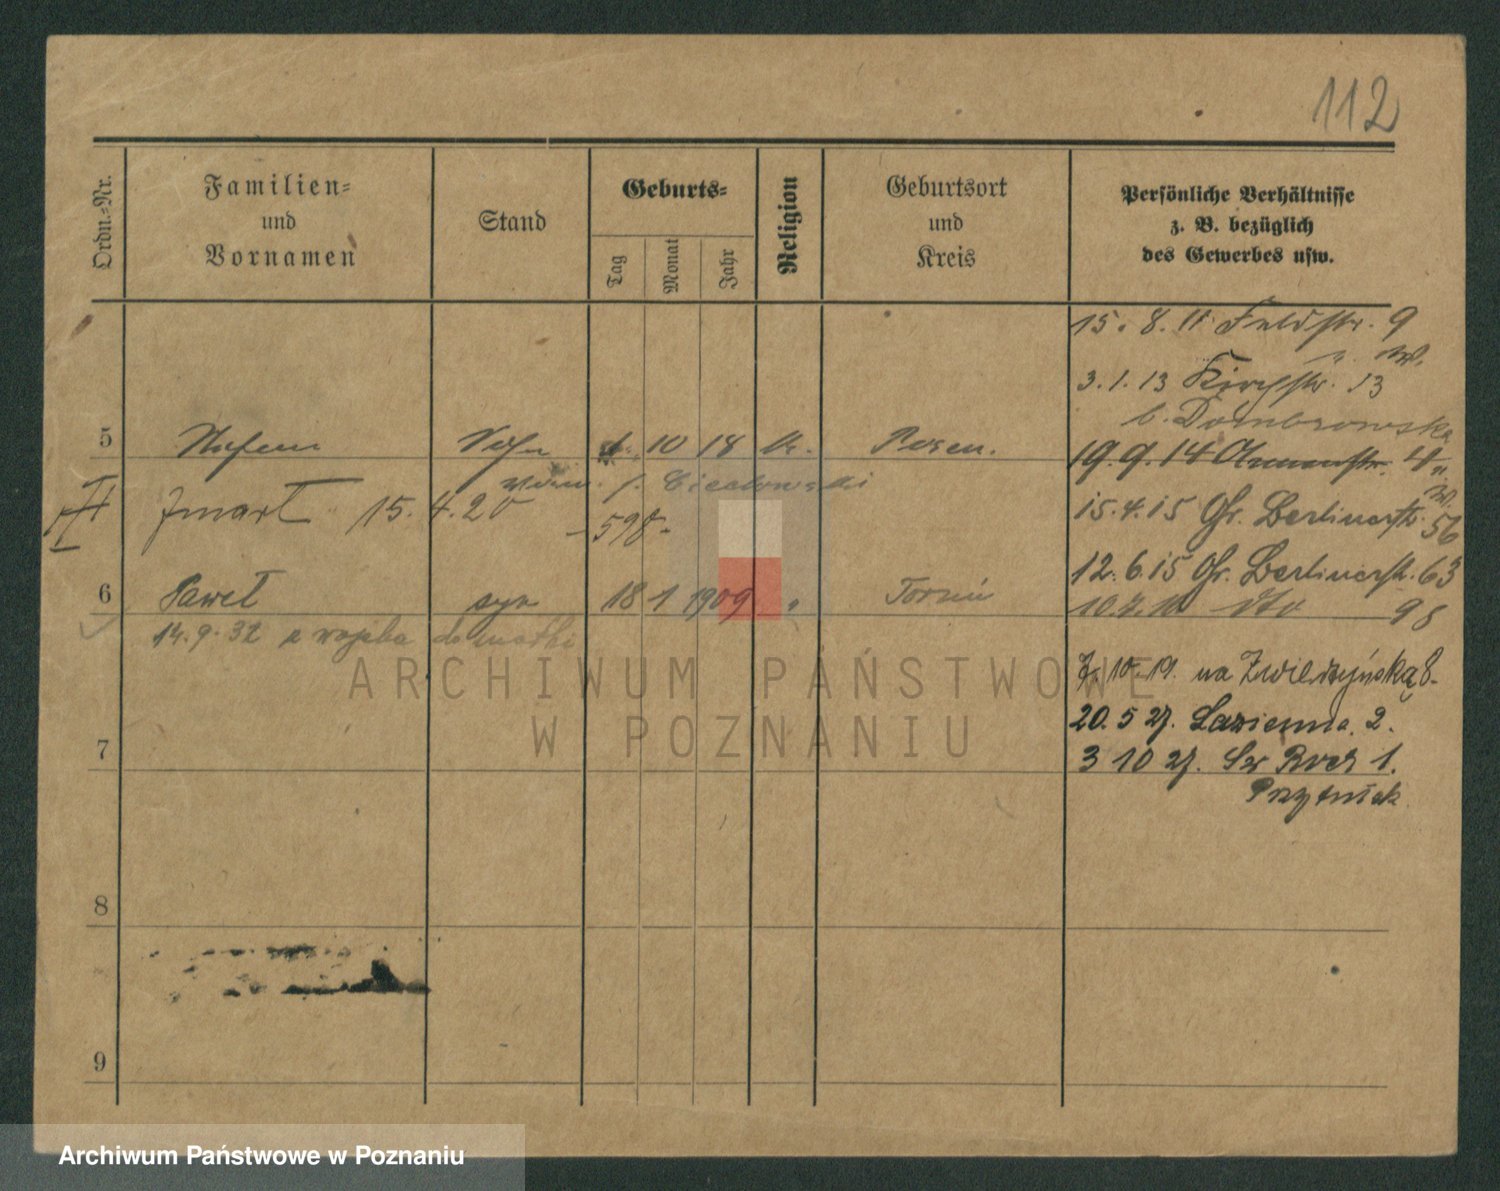 112
Ordn.=Nr.
Familien=
und
Vornamen
Stand
Geburts=
Tag
Monat
Jahr
Religion
Geburtsort
und
Kreis
Persönliche Verhältnisse
z. B. bezüglich
des Gewerbes usw.
15. 8. 11 Feldstr. 9
3. 1. 13 Kirchstr. 13
b. Dombrowska
5 10 18 Posen.
19. 9. 14
zmarł 15. 4. 20
-598-
15. 4. 15 Gr. Berlinerstr. 56
12. 6. 15 Gr. Berlinerstr. 63
6 Paweł syn 18 1 1909 " Toruń
98
14. 9. 32 z wojska do matki
7. 10. 19. na Zwierzyńską 8.
20. 5 27. Łazienna 2.
7
3 10 27. Św Roch 1.
Przytniak
8
9
ARCHIWUM PAŃSTWOWE
W POZNANIU
Archiwum Państwowe w Poznaniu